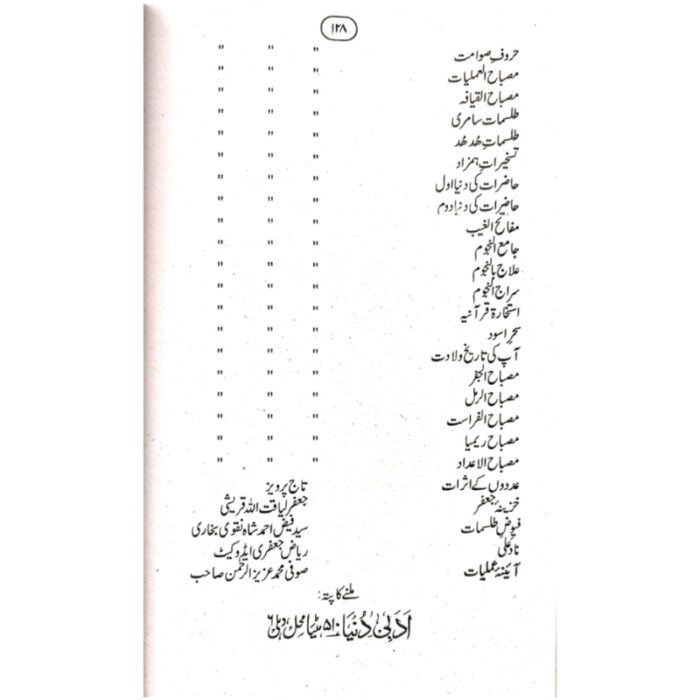 ۱۲۸
حروفِ صوامت " " "
مصباح العملیات " " "
مصباح القیافہ " " "
طلسمات سامری " " "
طلسماتِ ھُد ھُد " " "
تسخیراتِ ہمزاد " " "
حاضرات کی دنیا اول " " "
حاضرات کی دنیا دوم " " "
مفاتح الغیب " " "
جامع النجوم " " "
علاج بالنجوم " " "
سراج النجوم " " "
استخارۃ قرآنیہ " " "
سحرِ اسود " " "
آپ کی تاریخ ولادت " " "
مصباح الجفر " " "
مصباح الرمل " " "
مصباح الفراست " " "
مصباح ریمیا " " "
مصباح الاعداد " " "
عددوں کے اثرات تاج پرویز
خزینۂ جعفر جعفر لیاقت اللہ قریشی
فیوضِ طلسمات سید فیض احمد شاہ نقوی بخاری
نادِ علی ریاض جعفری ایڈوکیٹ
آئینۂ عملیات صوفی محمد عزیز الرحمٰن صاحب
ملنے کا پتہ:
اَدَبیْ دُنیَا ۵۱۰ مٹیا محل، دہلی ۶